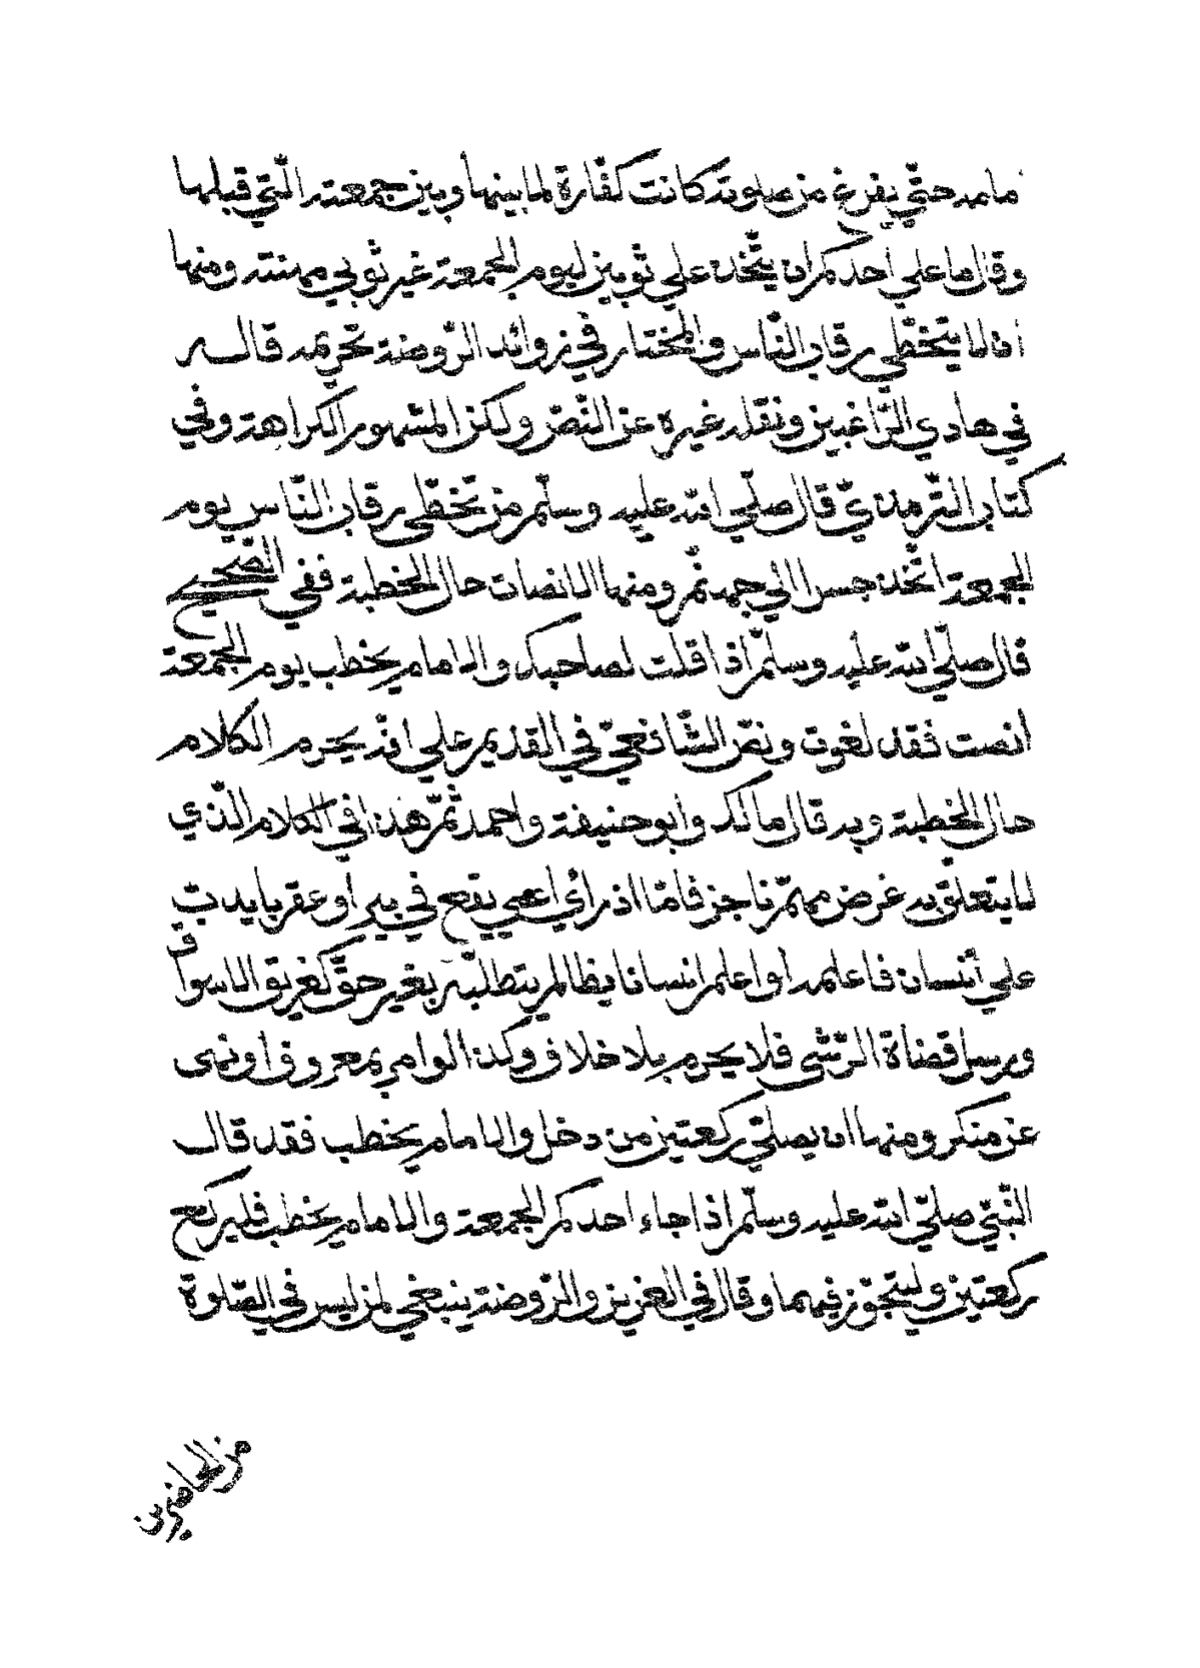 مامه حتّي يفرغ من صلوته كانت كفّارة لما بينها وبين جمعته الّتي قبلها
وقال ما علي احدكم ان يتّخذ علي ثوبين ليوم الجمعة غير ثوبي مهنته ومنها
ان لا يتخطّي رقاب النّاس والمختار في زوائد الرّوضة تحريمه قاله
في هادي الرّاغبين ونقله غيره عن النّصّ ولكن المشهور الكراهة وفي
كتاب التّرمذيّ قال صلّي الله عليه وسلّم من تخطّي رقاب النّاس يوم
الجمعة اتّخذ جسرا الي جهنّم ومنها الانصات حال الخطبة ففي الصّحيح
قال صلّي الله عليه وسلّم اذا قلت لصاحبك والامام يخطب يوم الجمعة
انصت فقد لغوت ونصّ الشّافعيّ في القديم علي انّه يحرم الكلام
حال الخطبة وبه قال مالك وابو حنيفة واحمد ثمّ هذا في الكلام الّذي
لا يتعلّق به غرض مهمّ ناجز فامّا اذا رأي اعمي يقع في بير او عقربا يدبّ
علي انسان فاعلمه او اعلم انسانا بظالم يتطلّبه بغير حقّ كغريق الاسواق
ورسل قضاة الرّشي فلا يحرم بلا خلاف وكذا لو امر بمعروف او نهي
عن منكر ومنها ان يصلّي ركعتين من دخل والامام يخطب فقد قال
النّبيّ صلّي الله عليه وسلّم اذا جاء احدكم الجمعة والامام يخطب فليركع
ركعتين وليتجوّز فيهما وقال في العزيز والرّوضة ينبغي لمن ليس في الصّلوة
من الحاضرين